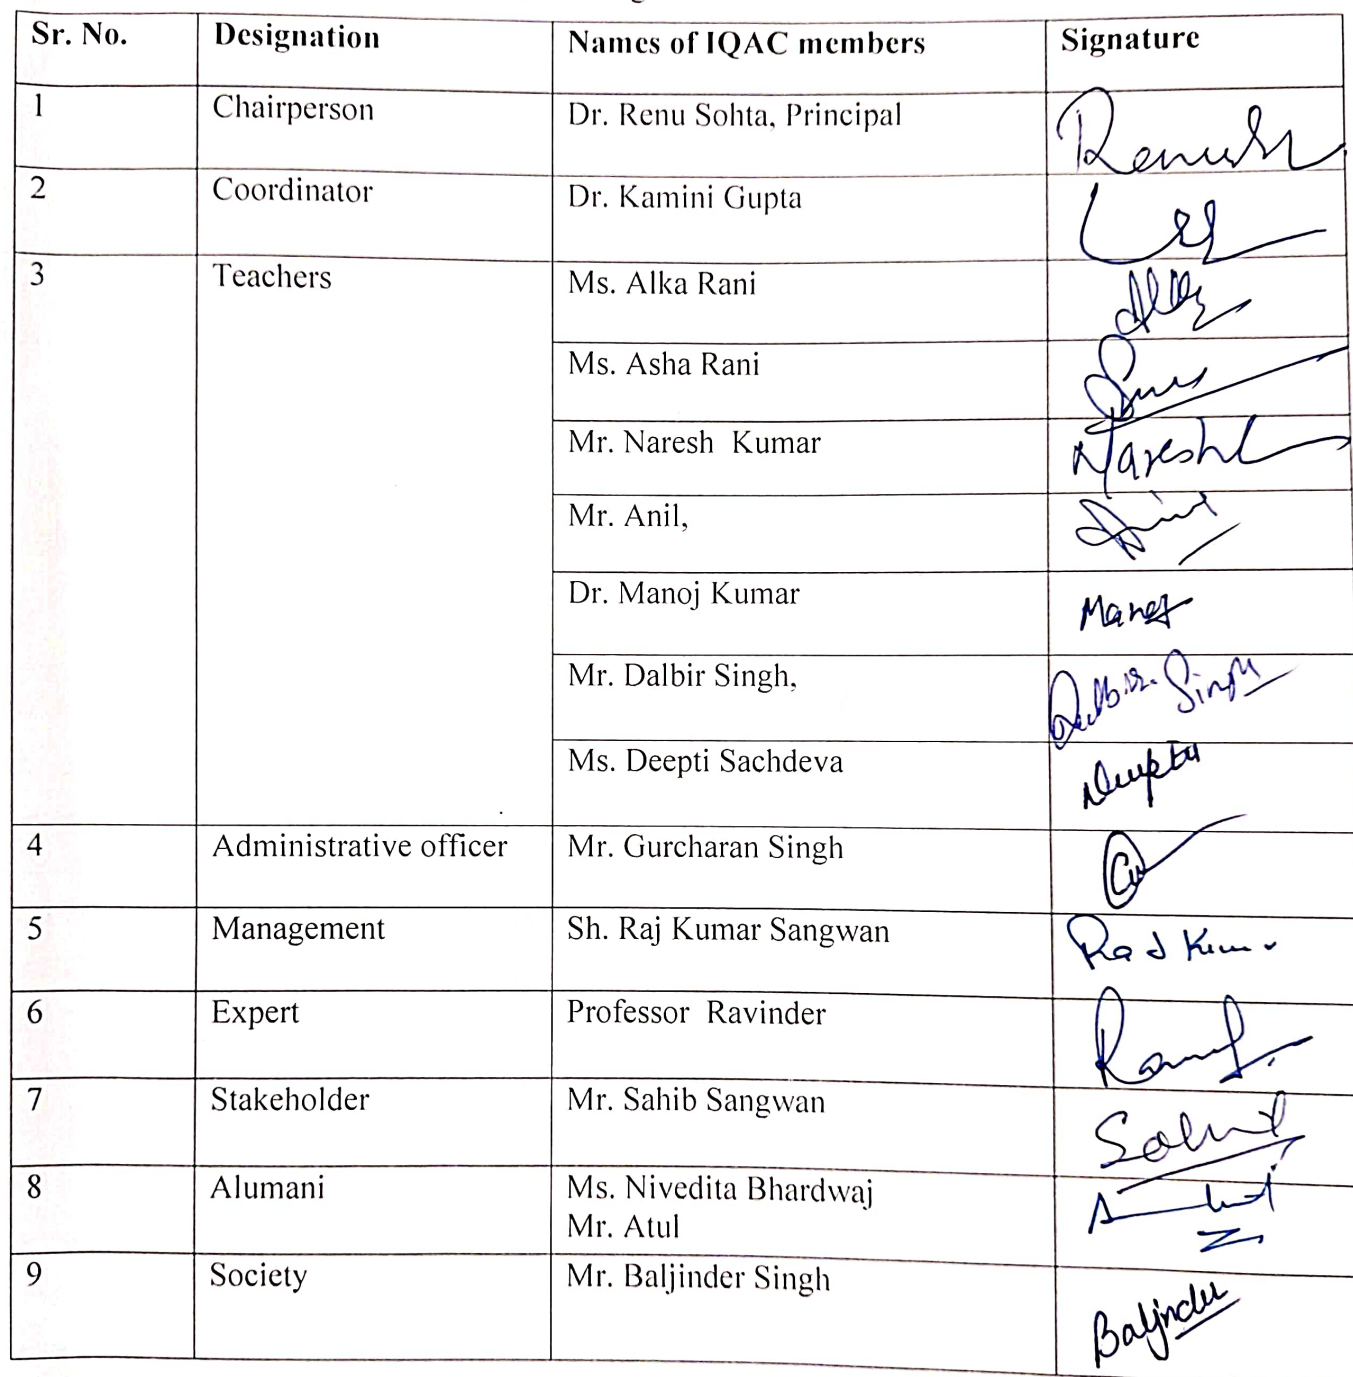 Sr. No. Designation Names of IQAC members Signature
1 Chairperson Dr. Renu Sohta, Principal
2 Coordinator Dr. Kamini Gupta
3 Teachers Ms. Alka Rani
Ms. Asha Rani
Mr. Naresh Kumar Naresh
Mr. Anil,
Dr. Manoj Kumar Manoj
Mr. Dalbir Singh, Dalbir Singh
Ms. Deepti Sachdeva
4 Administrative officer Mr. Gurcharan Singh
5 Management Sh. Raj Kumar Sangwan Raj Kumar
6 Expert Professor Ravinder
7 Stakeholder Mr. Sahib Sangwan
8 Alumani Ms. Nivedita Bhardwaj
Mr. Atul
9 Society Mr. Baljinder Singh Baljinder